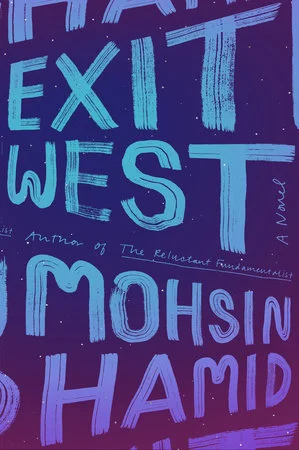 EXIT
WEST
A Novel
Author of The Reluctant Fundamentalist
MOHSIN
HAMID